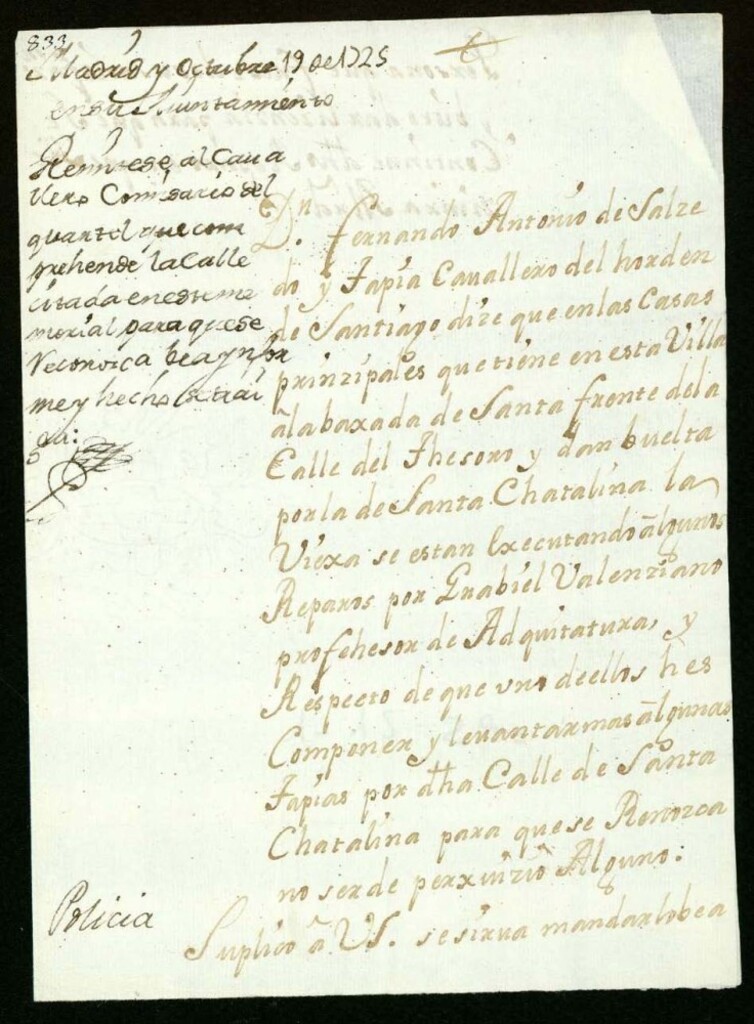 833
Madrid y Octubre 19 de 1725
en su Aiuntamiento
Remitese al Cava
llero Comisario del
quartel que com
prehende la Calle
citada en este me
morial para que se
reconozca bea ynfor
me y hecho se trai
ga:
Dn. Fernando Antonio de Salze
do y Tapia Cavallero del horden
de Santiago dize que en las Casas
prinzipales que tiene en esta Villa
â la baxada de Santa frente de la
Calle del Thesoro y dan buelta
por la de Santa Chatalina la
Viexa se estan Executando âlgunos
Reparos por Grabiel Valenziano
profehesor de Adquitatura, y
Respecto de que uno de ellos hes
Componer y levantar mas âlgunas
Tapias por dha Calle de Santa
Chatalina para que se Renozca
no ser de perxuizio Alguno:
Suplico â VS. se sirua mandarlo bea
Policia